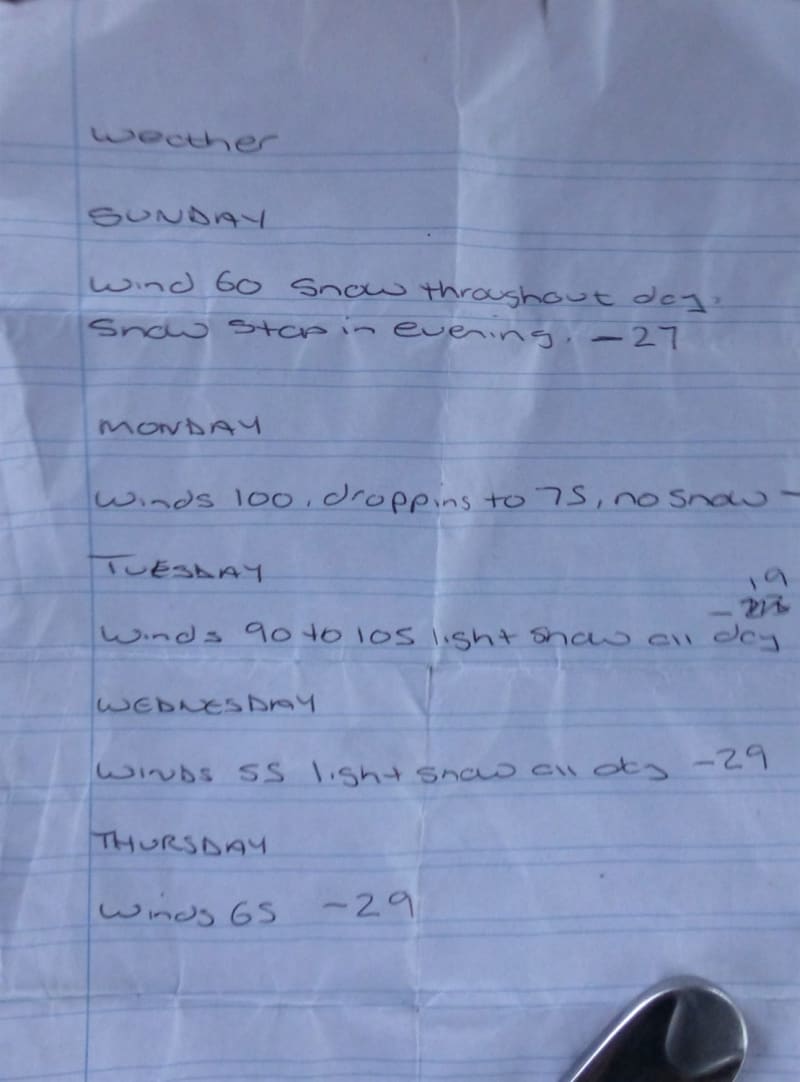 Weather
SUNDAY
Wind 60 Snow throughout day.
Snow stop in evening. -27
MONDAY
Winds 100, dropping to 75, no snow -
TUESDAY
19
Winds 90 to 105 light snow all day
WEDNESDAY
WINDS 55 light snow all day -29
THURSDAY
Winds 65 -29